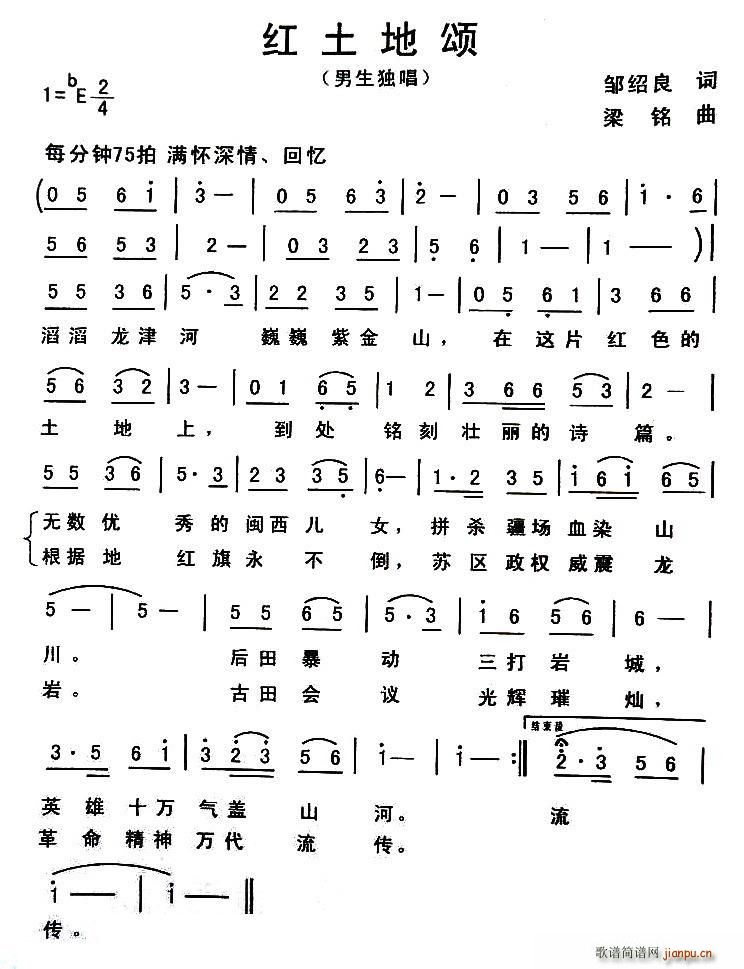 红土地颂
（男生独唱）
1=ᵇE 2/4
邹绍良 词
梁铭 曲
每分钟75拍 满怀深情、回忆
(0 5 6 i | 3 - | 0 5 6 3 | 2 - | 0 3 5 6 | i · 6 |
5 6 5 3 | 2 - | 0 3 2 3 | 5 6 | 1 - | 1 - ) |
5 5 3 6 | 5 · 3 | 2 2 3 5 | 1 - | 0 5 6 1 | 3 6 6 |
滔滔 龙津河 巍巍紫金山，在这片红色的
5 6 3 2 | 3 - | 0 1 6 5 | 1 2 | 3 6 6 5 3 | 2 - |
土地上，到处铭刻壮丽的诗篇。
5 5 3 6 | 5 · 3 | 2 3 3 5 | 6 - | 1 · 2 3 5 | i 6 i 6 5 |
无数优秀的闽西儿女，拼杀疆场血染山
根据地红旗永不倒，苏区政权威震龙
5 - | 5 - | 5 5 6 5 | 5 · 3 | i 6 5 6 | 6 - |
川。后田暴动三打岩城，
岩。古田会议光辉璀灿，
结束段
3 · 5 6 i | 3 2 3 5 6 | i - | i - :‖ 2 · 3 5 6 |
英雄十万气盖山河。流
革命精神万代流传。
i - | i - ‖
传。
歌谱简谱网
jianpu.cn